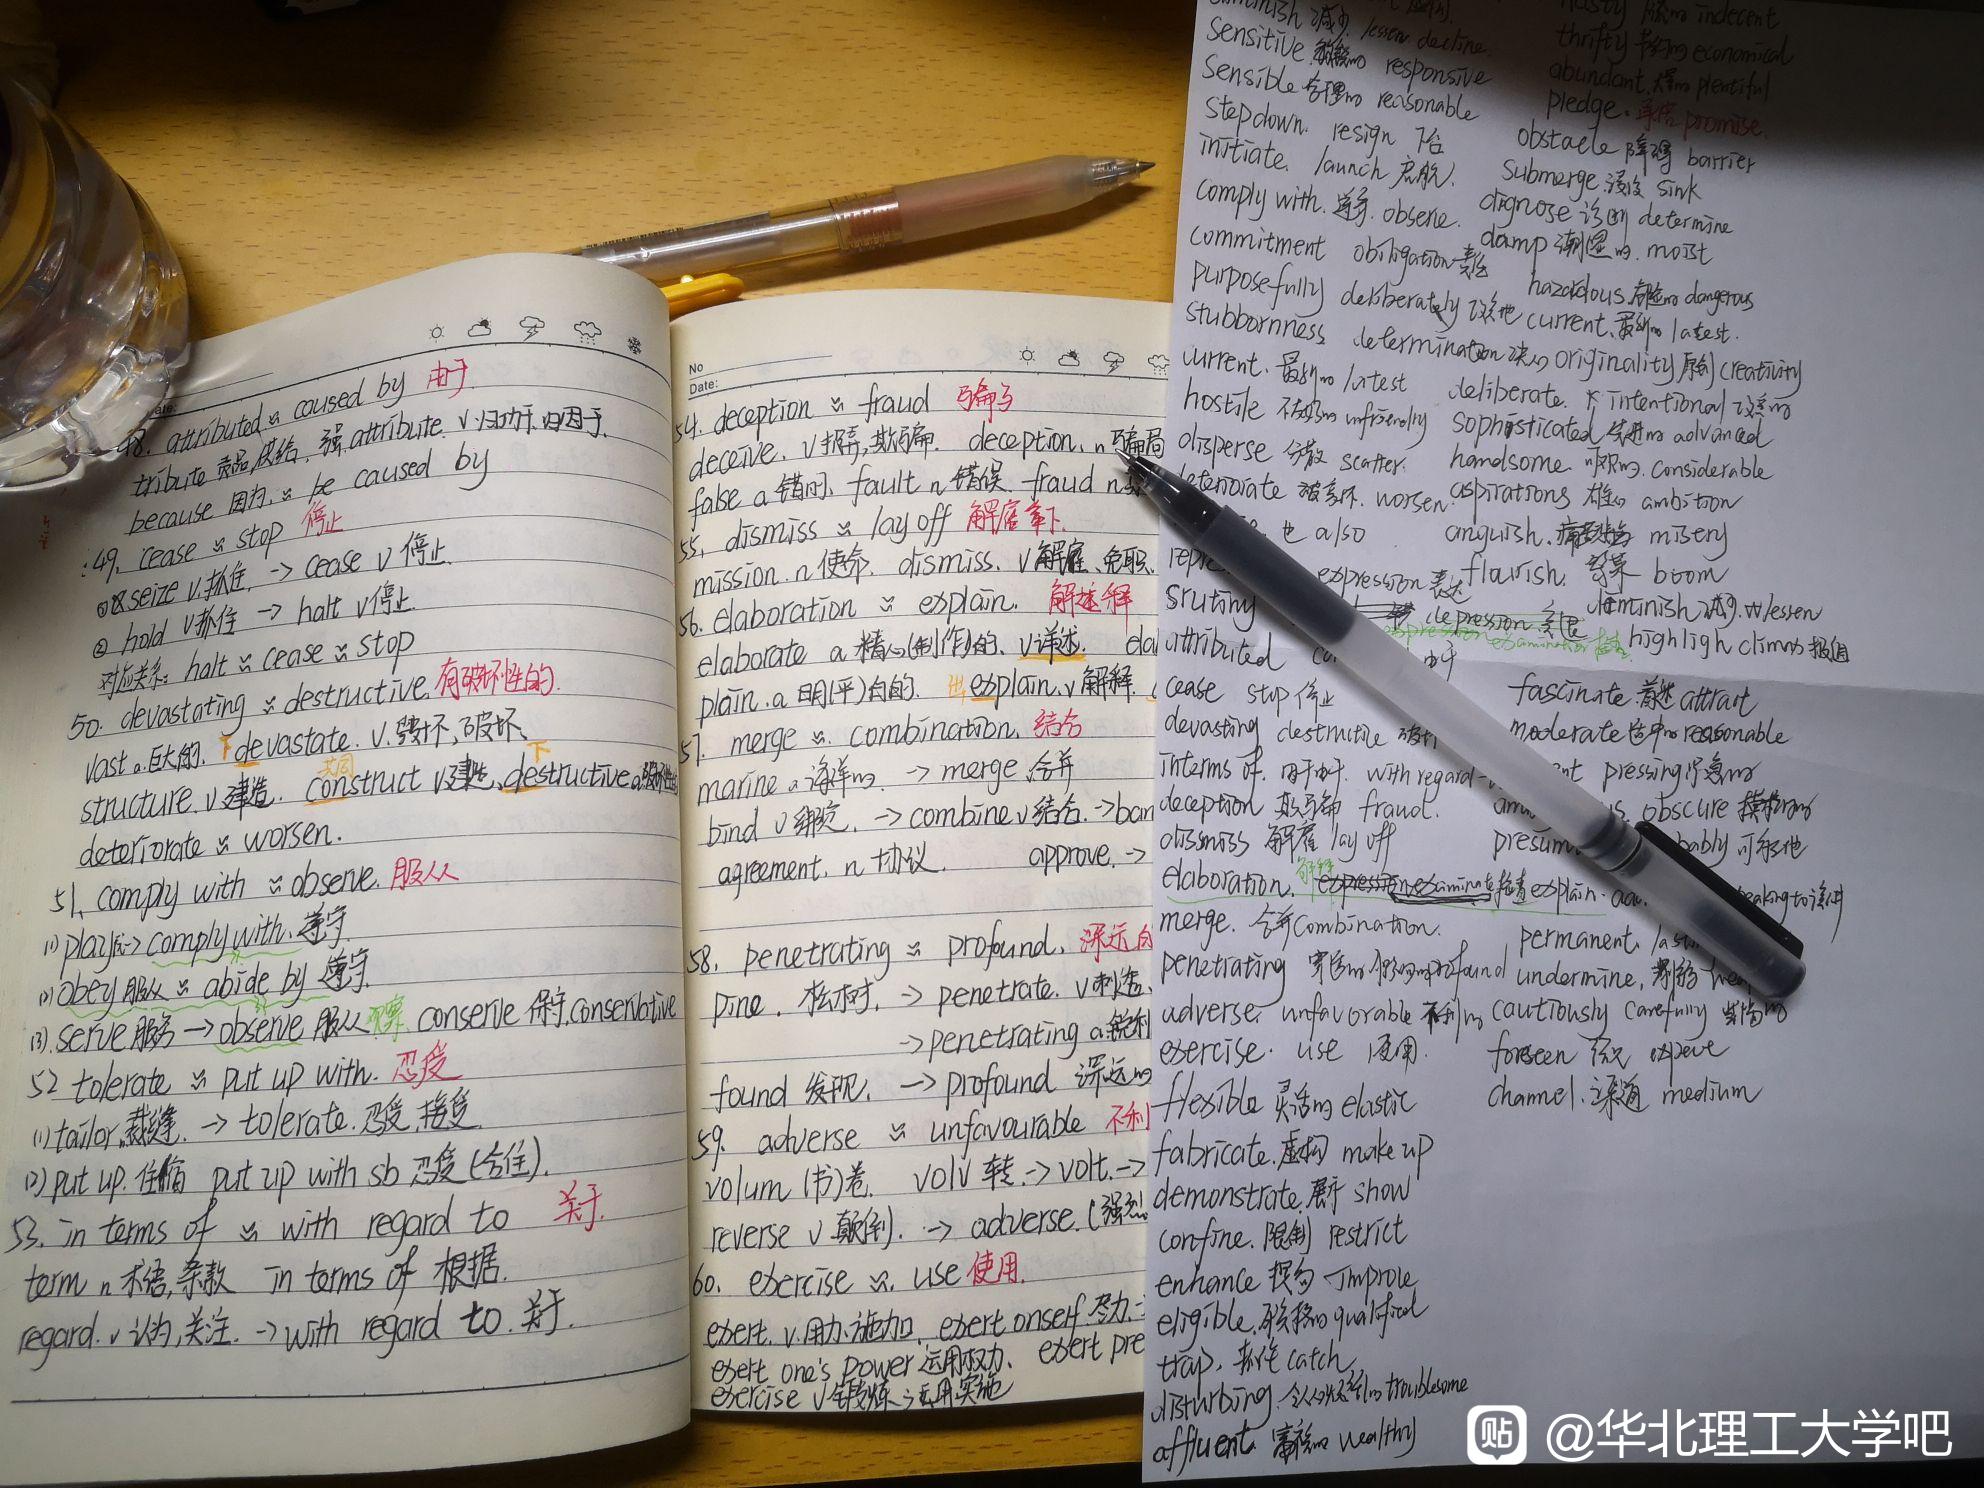 48. attributed ≈ caused by 由于
tribute 贡品,供给, 强. attribute. v 归功于.归因于.
because 因为. ≈ be caused by
49. cease ≈ stop 停止
① seize v.抓住. → cease v 停止.
② hold v抓住 → halt v停止.
对应关系: halt ≈ cease ≈ stop
50. devastating ≈ destructive. 有破坏性的.
vast a.巨大的. 下 devastate. v.破坏.
structure. v建造. 共同 construct v建造, 下 destructive a
deteriorate ≈ worsen.
51. comply with ≈ observe. 服从
(1) play → comply with. 遵守.
(2) obey 服从 ≈ abide by 遵守.
(3) serve 服务 → observe 服从 观察. conserve 保守. conservative
52 tolerate ≈ put up with. 忍受
(1) tailor 裁缝. → tolerate. 忍受,接受.
(2) put up. 住宿 put up with sb 忍受(合住).
53. in terms of ≈ with regard to 关于.
term n 术语,条款 in terms of 根据.
regard. v 认为,关注. → with regard to. 关于.
No
Date:
54. deception ≈ fraud 骗局
deceive. v 欺骗. deception. n 骗局
false a 错的. fault n 错误. fraud n
55. dismiss ≈ lay off 解雇
mission. n 使命. dismiss. v 解雇、免职.
56. elaboration ≈ explain. 解释
elaborate a 精心(制作)的. v详述. ela
plain. a 明(平)白的. explain. v 解释.
57. merge ≈ combination. 结合
marine a 海洋的 → merge 合并
bind v 绑 → combine v 结合. → ban
agreement. n 协议. approve. →
58. penetrating ≈ profound. 深远的
pine. 松树. → penetrate. v 刺透、
→ penetrating a.锐利
found 发现. → profound 深远的
59. adverse ≈ unfavourable 不利
volum (书)卷. volv 转. → volt. →
reverse v 颠倒. → adverse. (强烈
60. exercise ≈ use 使用.
exert. v.用力.施加. exert onself 尽力
exert one's power 运用权力. exert pre
exercise v 锻炼 运用实施
diminish 减少. lessen decline.
sensitive 敏感的 responsive
sensible 合理的 reasonable
stepdown. resign 下台
initiate. launch 启航.
comply with. 遵守. observe.
commitment obiligation 责任
purposefully deliberately 故意地
stubbornness determination 决心
current. 最新的 latest
hostile 不友好的 unfriendly
disperse 分散 scatter.
deteriorate 破坏. worsen.
也 also
expression 表达
depression
srutiny
attributed 由于
cease stop 停止
devasting destrutile
interms of. 由于 with regard
deception 欺骗 fraud.
dismiss 解雇 lay off
elaboration. 解释 explain.
merge. 合并 combination.
penetrating profound
adverse. unfavorable 不利的
exercise. use 使用.
flexible 灵活的 elastic
fabricate. 虚构 make up
demonstrate. 展示 show
confine. 限制 restrict
enhance 提高 improve
eligible. 有资格的 qualified
trap. 抓住 catch
disturbing. troublesome
affluent. 富裕的 wealthy
nasty indecent
thrifty 节约的 economical
abundant. 大量的 plentiful
pledge. 承诺 promise.
obstacle 障碍 barrier
submerge. 淹没 sink
dignose 诊断 determine
damp 潮湿的. moist
hazardous. 危险的 dangerous
current. 最新的 latest.
originality 原创 creativity
deliberate. intentional 故意的
sophisticated 先进的 advanced
handsome. 可观的. considerable
aspirations 雄心 ambition
anguish. misery
flourish. 繁荣 boom
deminish 减少. lessen
highligh climax
fascinate. attract
moderate 适中的 reasonable
pressing 紧急的
obscure 模糊的
可能地
permanent.
undermine. 削弱
cautiously carefully
foreseen 预见 expect
channel. 渠道 medium
贴 @华北理工大学吧